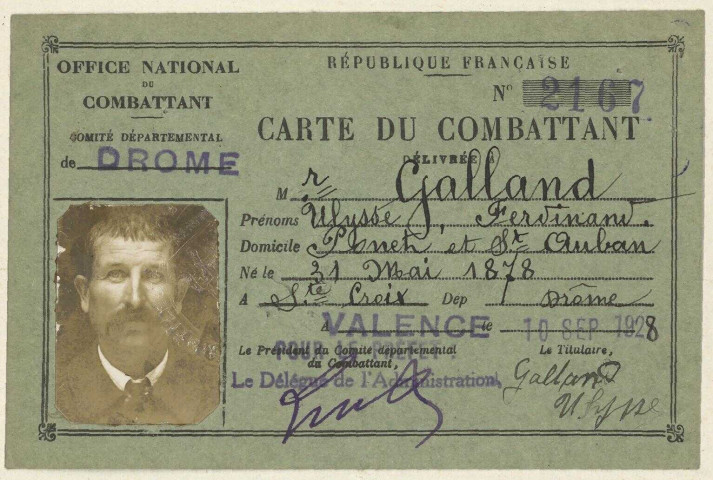 OFFICE NATIONAL
DU
COMBATTANT
COMITÉ DÉPARTEMENTAL
de DROME
RÉPUBLIQUE FRANÇAISE
N° 2167
CARTE DU COMBATTANT
DÉLIVRÉE À
M r. Galland
Prénoms Ulysse, Ferdinand.
Domicile Ponet et St Auban
Né le 31 Mai 1878
A Ste Croix Dép Drôme
A VALENCE le 10 SEP 1928
POUR LE PRÉFET:
Le Président du Comité départemental
du Combattant,
Le Délégué de l'Administration,
Le Titulaire,
Galland
Ulysse